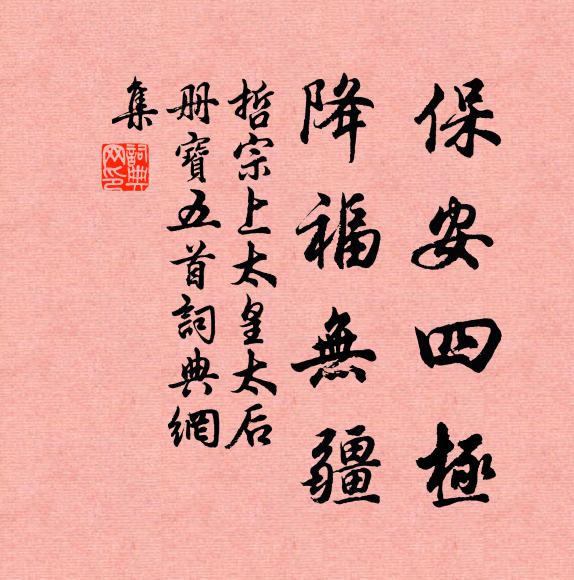 保安四極
降福無疆
哲宗上太皇太后
册寶五首詞典網
集
詞典網印